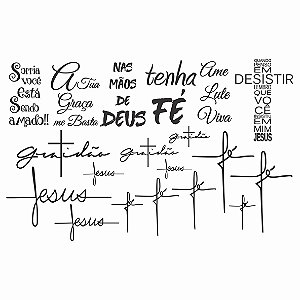 Sorria
você
Está
Sendo
amado!!
A Tua
Graça
me Basta
NAS
MÃOS
DE
DEUS
tenha
FÉ
Ame
Lute
Viva
QUANDO
PENSO
EM
DESISTIR
LEMBRO
QUE
VOCÊ
MORA
EM
MIM
JESUS
gratidão
gratidão
gratidão
Jesus
Jesus
Jesus
fé
fé
fé
fé
fé
fé